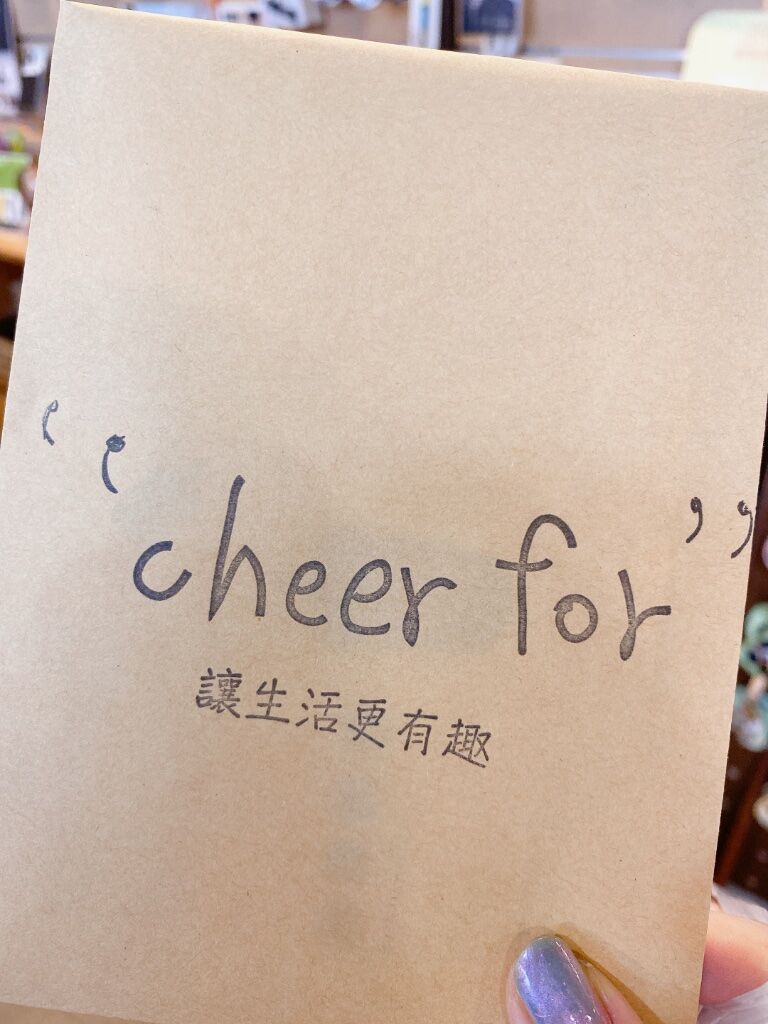 “cheer for”
讓生活更有趣